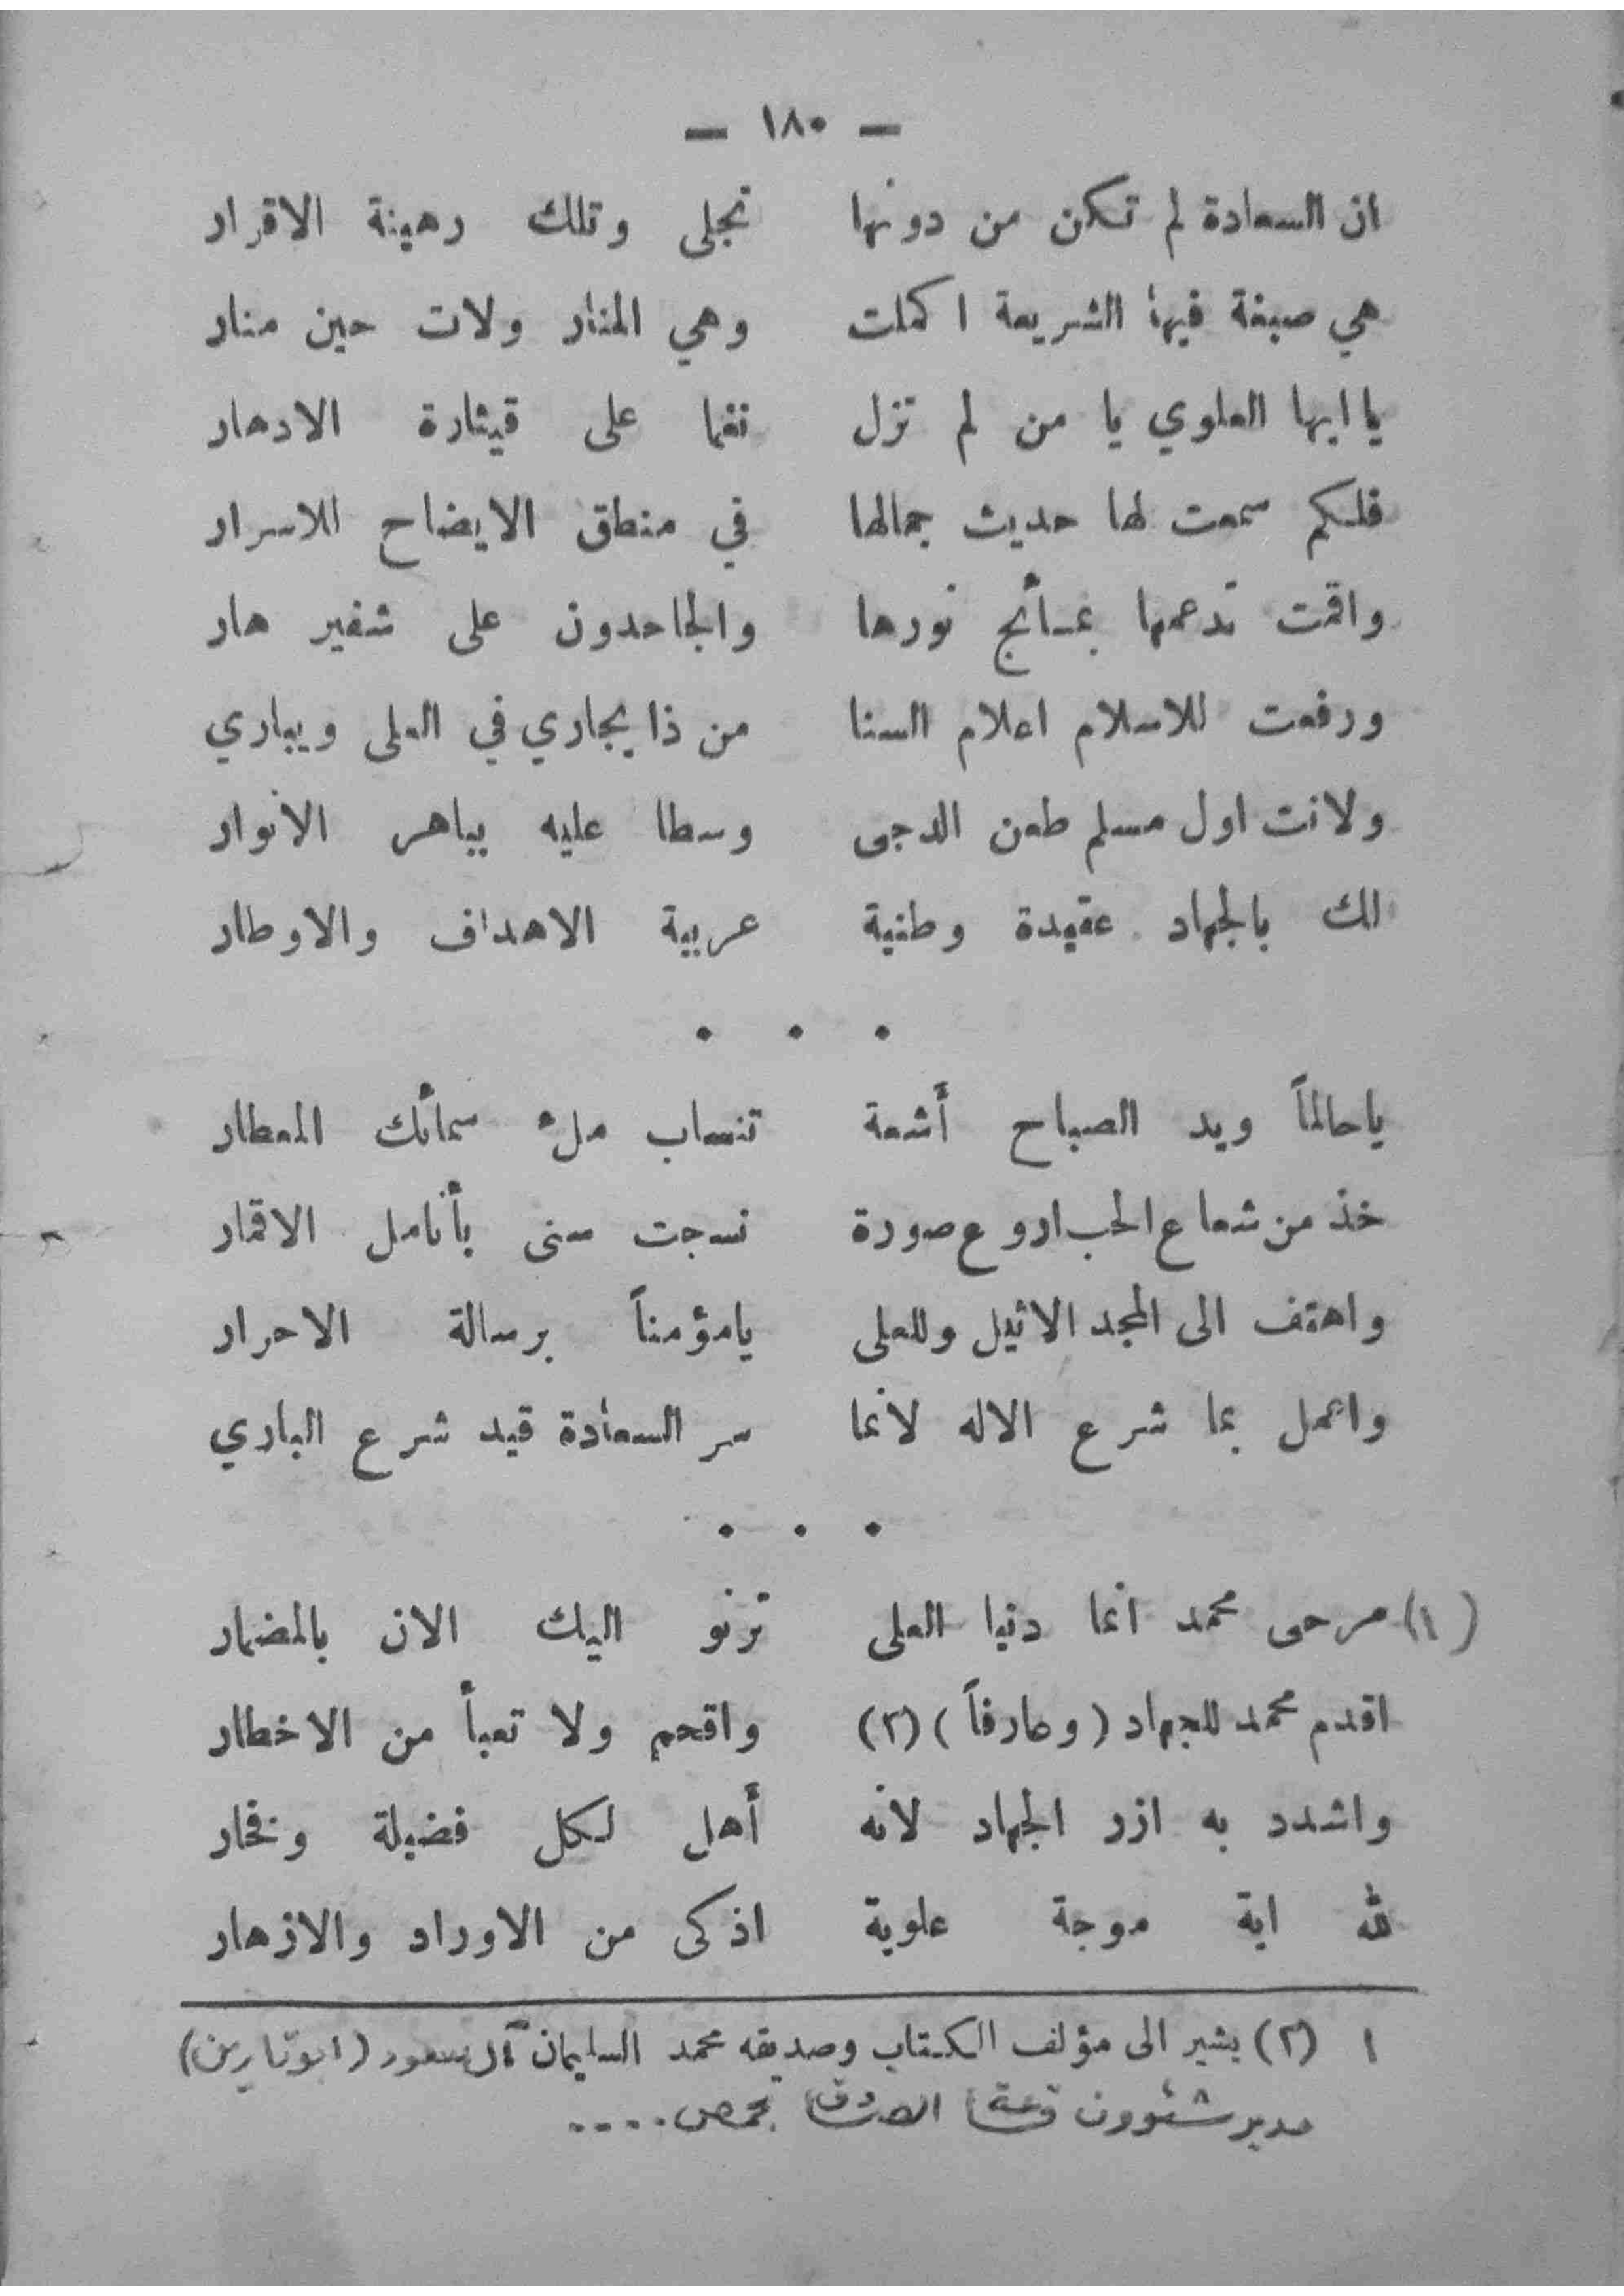 — ١٨٠ —
ان السعادة لم تكن من دونها تجلى وتلك رهينة الاقرار
هي صبغة فيها الشريعة اكملت وهي المنار ولات حين منار
يا ايها العلوي يا من لم تزل نغما على قيثارة الادهار
فلكم سمعت لها حديث جمالها في منطق الايضاح للاسرار
واقمت تدعمها بمسائج نورها والجاحدون على شفير هار
ورفعت للاسلام اعلام السنا من ذا يجاري في العلى ويباري
ولانت اول مسلم طعن الدجى وسطا عليه بباهر الانوار
لك بالجهاد عقيدة وطنية عربية الاهداف والاوطار
• • •
ياحالماً ويد الصباح أشعة تنساب ملء سمائك المعطار
خذ من شعاع الحب اروع صورة نسجت سنى بأنامل الاقمار
واهتف الى المجد الاثيل وللعلى يامؤمناً برسالة الاحرار
واعمل بما شرع الاله لانما سر السعادة قيد شرع الباري
• • •
(١) مرحى محمد انما دنيا العلى ترنو اليك الان بالمضمار
اقدم محمد للجهاد (وعارفاً) (٢) واقحم ولا تعبأ من الاخطار
واشدد به ازر الجهاد لانه أهل لكل فضيلة وفخار
لله اية موجة علوية اذكى من الاوراد والازهار
١ (٢) يشير الى مؤلف الكتاب وصديقه محمد السليمان آل سعود (ابو نارين)
مدير شئوون بحمص....